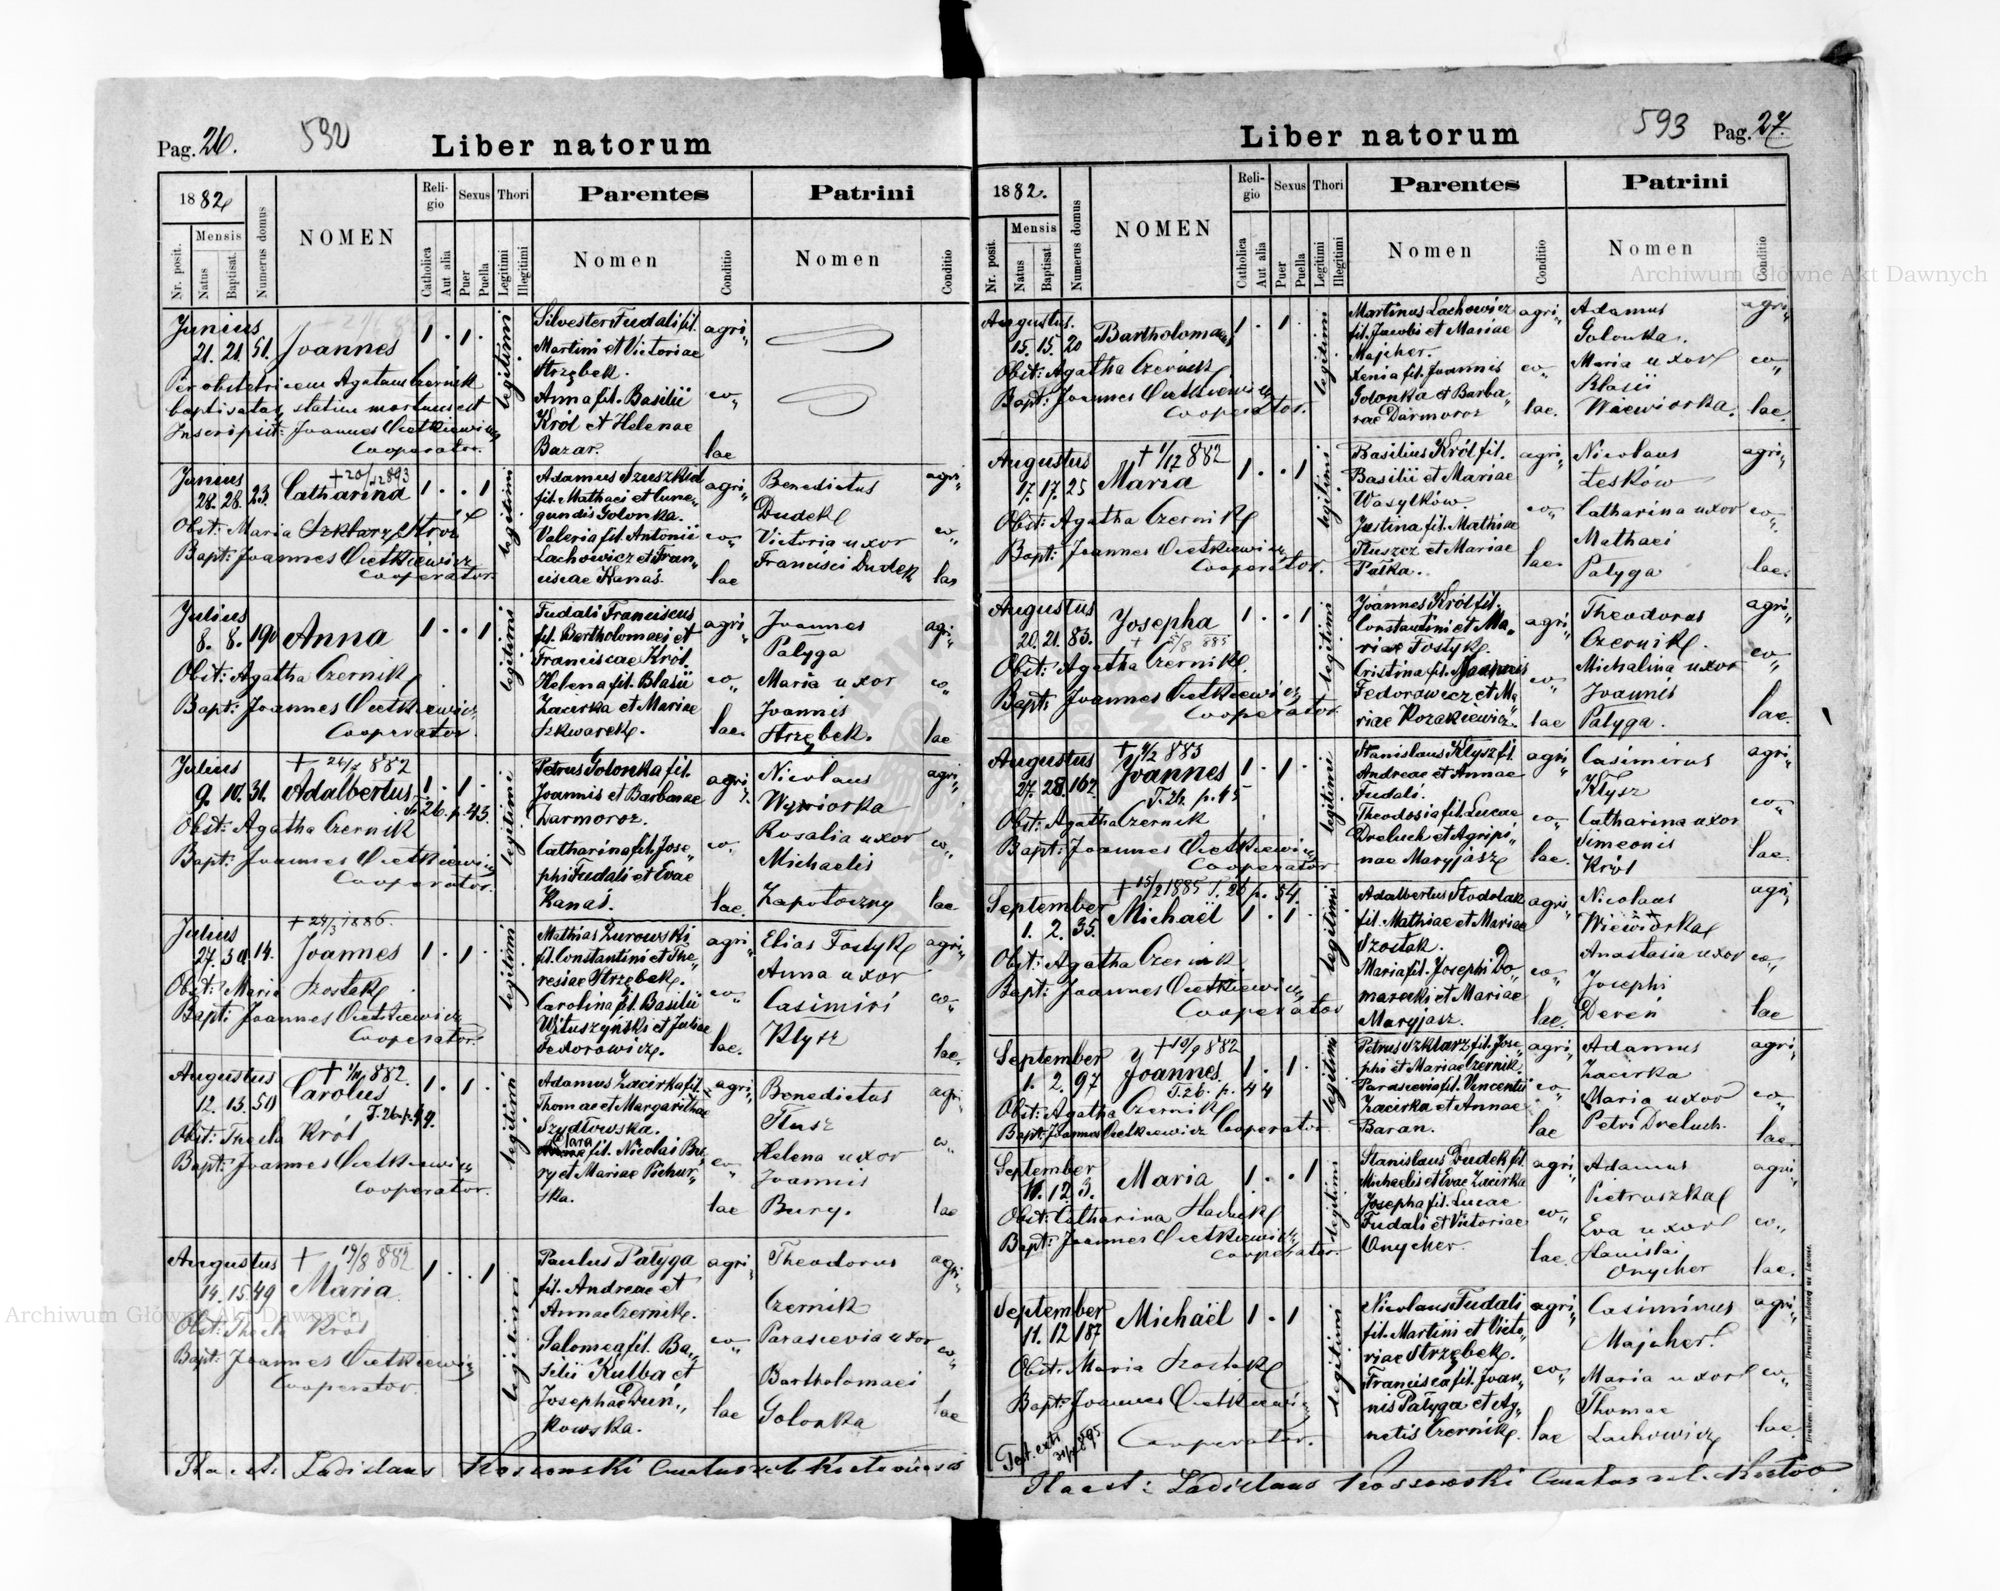 Pag. 26.
592
Liber natorum
1882
Nr. posit.
Mensis
Natus
Baptisat.
Numerus domus
NOMEN
Religio
Catholica
Aut alia
Sexus
Puer
Puella
Thori
Legitimi
Illegitimi
Parentes
Nomen
Conditio
Patrini
Nomen
Conditio
Junius
21. 21. 51. Joannes 1 . 1 . legitimi
Per obstetricem Agatam Czernik
baptisatus, statim mortuus est
Inscripsit: Joannes Cietkiewicz
Cooperator.
Silvester Fudali fil.
Martini et Victoriae
Strzębek.
Anna fil. Basilii
Król et Helenae
Bazar.
agri„
co„
lae
Junius +20/12 893
28. 28. 23. Catharina 1 . . 1 legitimi
Obst: Maria Szklarz Król
Bapt: Joannes Cietkiewicz
Cooperator.
Adamus Szuszkiel
fil. Mathaei et Cune„
gundis Golonka.
Valeria fil. Antonii
Lachowicz et Fran„
ciscae Kanas.
agri„
co„
lae
Benedictus
Dudek
Victoria uxor
Francisci Dudek
agri„
co„
lae
Julius
8. 8. 190 Anna 1 . . 1 legitimi
Obst: Agatha Czernik
Bapt: Joannes Cietkiewicz
Cooperator.
Fudali Franciscus
fil. Bartholomaei et
Franciscae Król.
Helena fil. Blasii
Zacirka et Mariae
Szkwarek.
agri„
co„
lae.
Joannes
Patyga
Maria uxor
Joannis
Strzębek.
agri„
co„
lae
Julius + 26/7 882
9. 10. 31. Adalbertus 1 . 1 . legitimi
T. 26. p. 43.
Obst: Agatha Czernik
Bapt: Joannes Cietkiewicz
Cooperator.
Petrus Golonka fil.
Joannis et Barbarae
Darmoroz.
Catharina fil. Jose„
phi Fudali et Evae
Kanas.
agri„
co„
lae.
Nicolaus
Wiwiorka
Rosalia uxor
Michaelis
Zapotoczny
agri„
co„
lae
Julius + 24/3 1886.
27. 30. 14. Joannes 1 . 1 . legitimi
Obst: Maria Szostak
Bapt: Joannes Cietkiewicz
Cooperator.
Mathias Żurowski
fil. Constantini et The„
resiae Strzębek.
Carolina fil. Basilii
Wituszyński et Juliae
Fedorowicz.
agri„
co„
lae.
Elias Fostyk
Anna uxor
Casimiri
Kłysz
agri„
co„
lae.
Augustus
12. 13. 50 Carolus 1 . 1 . legitimi
T. 26. p. 49.
Obst: Thecla Król
Bapt: Joannes Cietkiewicz
Cooperator.
Adamus Zacirka fil.
Thomae et Margarithae
Szydłowska.
Clara fil. Nicolai Bu„
ry et Mariae Pichur„
ska.
agri„
co„
lae
Benedictus
Tłusz
Helena uxor
Joannis
Bury.
agri„
co„
lae
Augustus + 19/8 882
14. 15. 49 Maria 1 . . 1 legitimi
Obst: Thecla Król
Bapt: Joannes Cietkiewicz
Cooperator.
Paulus Patyga
fil. Andreae et
Annae Czernik.
Salomea fil. Ba„
silii Kulba et
Josephae Duń„
kowska.
agri„
co„
lae
Theodorus
Czernik
Parascevia uxor
Bartholomaei
Golonka
agri„
co„
lae
Ladislaus Rossowski Curatus
Liber natorum
593 Pag. 27.
1882.
Nr. posit.
Mensis
Natus
Baptisat.
Numerus domus
NOMEN
Religio
Catholica
Aut alia
Sexus
Puer
Puella
Thori
Legitimi
Illegitimi
Parentes
Nomen
Conditio
Patrini
Nomen
Conditio
Augustus.
15. 15. 20 Bartholomaeus 1 . 1 . legitimi
Obst: Agatha Czernik
Bapt: Joannes Cietkiewicz
Cooperator.
Martinus Lachowicz
fil. Jacobi et Mariae
Majcher.
Xenia fil. Joannis
Golonka et Barba„
rae Darmoroz
agri„
co„
lae.
Adamus
Golonka.
Maria uxor
Blasii
Wiewiorka.
agri„
co„
lae
Augustus + 1/12 882
17. 17. 25 Maria 1 . . 1 legitimi
Obst: Agatha Czernik
Bapt: Joannes Cietkiewicz
Cooperator.
Basilius Król fil.
Basilii et Mariae
Wasylków.
Justina fil. Mathiae
Tłuszcz et Mariae
Pałka.
agri„
co„
lae.
Nicolaus
Leśków
Catharina uxor
Mathaei
Patyga
agri„
co„
lae.
Augustus
20. 21. 83. Josepha 1 . . 1 legitimi
+ 5/8 885
Obst: Agatha Czernik
Bapt: Joannes Cietkiewicz
Cooperator.
Joannes Król fil.
Constantini et Ma„
riae Fostyk.
Cristina fil. Joannis
Fedorowicz et Ma„
riae Kozakiewicz.
agri„
co„
lae
Theodorus
Czernik.
Michalina uxor
Joannis
Patyga.
agri„
co„
lae.
Augustus + 9/2 883
27. 28. 162. Joannes 1 . 1 . legitimi
T. 26. p. 45
Obst: Agatha Czernik
Bapt: Joannes Cietkiewicz
Cooperator
Stanislaus Kłysz fil.
Andreae et Annae
Fudali.
Theodosia fil. Lucae
Dreluch et Agripi„
nae Maryjasz
agri„
co„
lae.
Casimirus
Kłysz
Catharina uxor
Simeonis
Król
agri„
co„
lae.
September + 15/2 1885 T. 26 p. 54.
1. 2. 35. Michaël 1 . 1 . legitimi
Obst: Agatha Czernik
Bapt: Joannes Cietkiewicz
Cooperator
Adalbertus Stodolak
fil. Mathiae et Mariae
Szostak.
Maria fil. Josephi Do„
marecki et Mariae
Maryjasz.
agri„
co„
lae.
Nicolaus
Wiewiorka
Anastasia uxor
Josephi
Dereń
agri„
co„
lae
September + 10/9 882
1. 2. 97 Joannes 1 . 1 . legitimi
T. 26. p. 44
Obst: Agatha Czernik
Bapt: Joannes Cietkiewicz Cooperator
Petrus Szklarz fil. Jose„
phi et Mariae Czernik.
Parascevia fil. Vincentii
Zacirka et Annae
Baran.
agri„
co„
lae
Adamus
Zacirka
Maria uxor
Petri Dreluch.
agri„
co„
lae
September
11. 12. 3. Maria 1 . . 1 legitimi
Obst: Catharina Stachick
Bapt: Joannes Cietkiewicz
Cooperator.
Stanislaus Dudek fil.
Michaelis et Evae Zacirka
Josepha fil. Lucae
Fudali et Victoriae
Onycher.
agri„
co„
lae.
Adamus
Pietruszka
Eva uxor
Stanislai
Onycher
agri„
co„
lae.
September
11. 12. 187 Michaël 1 . 1 legitimi
Obst: Maria Szostak
Bapt: Joannes Cietkiewicz
Cooperator.
Nicolaus Fudali
fil. Martini et Victo„
riae Strzębek.
Francisca fil. Joan„
nis Patyga et Ag„
netis Czernik.
agri„
co„
lae
Casimirus
Majcher.
Maria uxor
Thomae
Lachowicz
agri„
co„
lae.
Ladislaus Rossowski Curatus
Archiwum Główne Akt Dawnych
Archiwum Główne Akt Dawnych